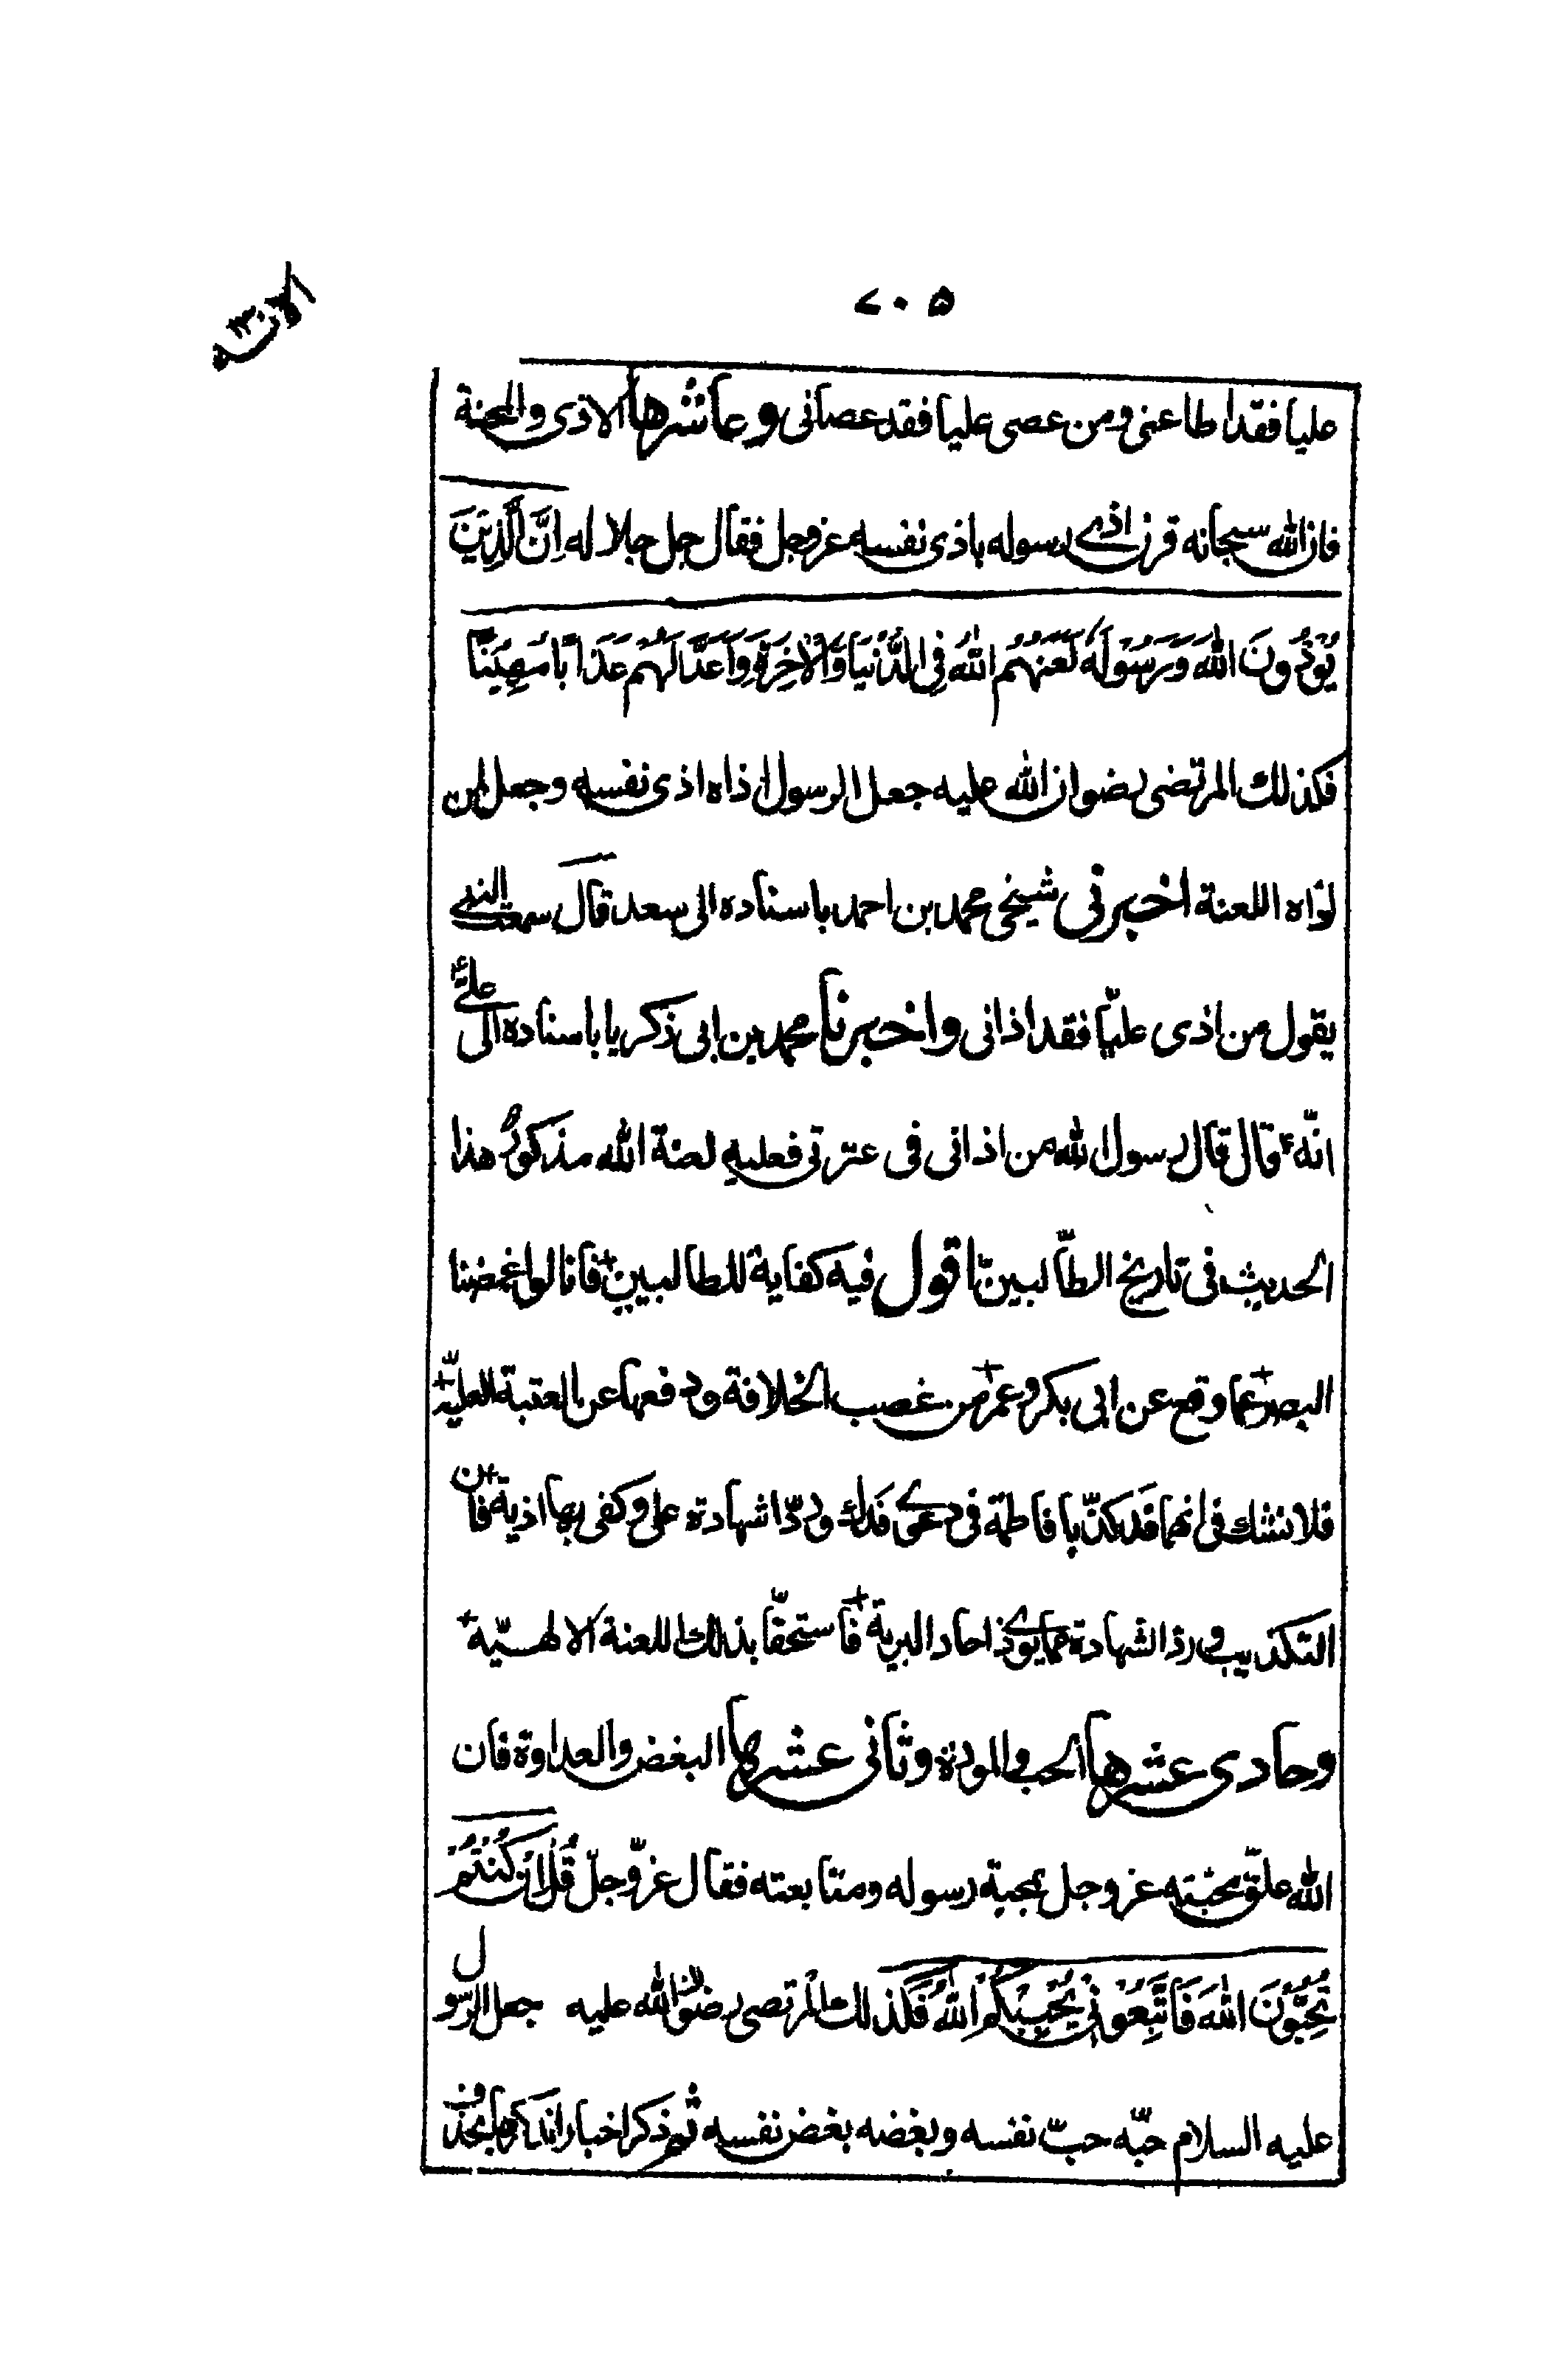 ٧٠٥
عليا فقد اطاعنى ومن عصى عليا فقد عصانى وعاشرها الاذى والمحنة
فان الله سبحانه قرن اذى رسوله باذى نفسه عز وجل فقال جل جلاله اِنَّ الَّذِينَ
يُؤْذُونَ اللهَ وَرَسُولَهُ لَعَنَهُمُ اللهُ فِى الدُّنْيَا وَالْاخِرَةِ وَاَعَدَّ لَهُمْ عَذَابًا مُهِينًا
فكذلك المرتضى رضوان الله عليه جعل الرسول اذاه اذى نفسه وجعل لمن
اذاه اللعنة اخبرنى شيخى محمد بن احمد باسناده الى سعد قال سمعت النبى
يقول من اذى عليّا فقد اذانى واخبرنا محمد بن ابى ذكريا باسناده الى على
انّه قال قال رسول الله من اذانى فى عترتى فعليه لعنة الله مذكور هذا
الحديث فى تاريخ الطّالبين اقول فيه كفاية للطالبين فانا لو اغمضنا
البصر عما وقع عن ابى بكر وعمر من غصب الخلافة ودفعها عن العتبة العليّة
فلا نشك فى انهما قد كذّبا فاطمة فى دعوى فدك وردّا شهادة على وكفى بها اذية فان
التكذيب ورد الشهادة مما يوذى احاد البرية فاستحقّا بذلك اللعنة الالهيّة
وحادى عشرها الحب والمودة وثانى عشرها البغض والعداوة فان
الله علّق محبّته عز وجل بمحبة رسوله ومتابعته فقال عزّ وجلّ قُلْ اِنْ كُنْتُمْ
تُحِبُّونَ اللهَ فَاتَّبِعُونِى يُحْبِبْكُمُ اللهُ فكذلك المرتضى رضوان الله عليه جعل الرسول
عليه السلام حبّه حبّ نفسه وبغضه بغض نفسه ثم ذكر اخبارا